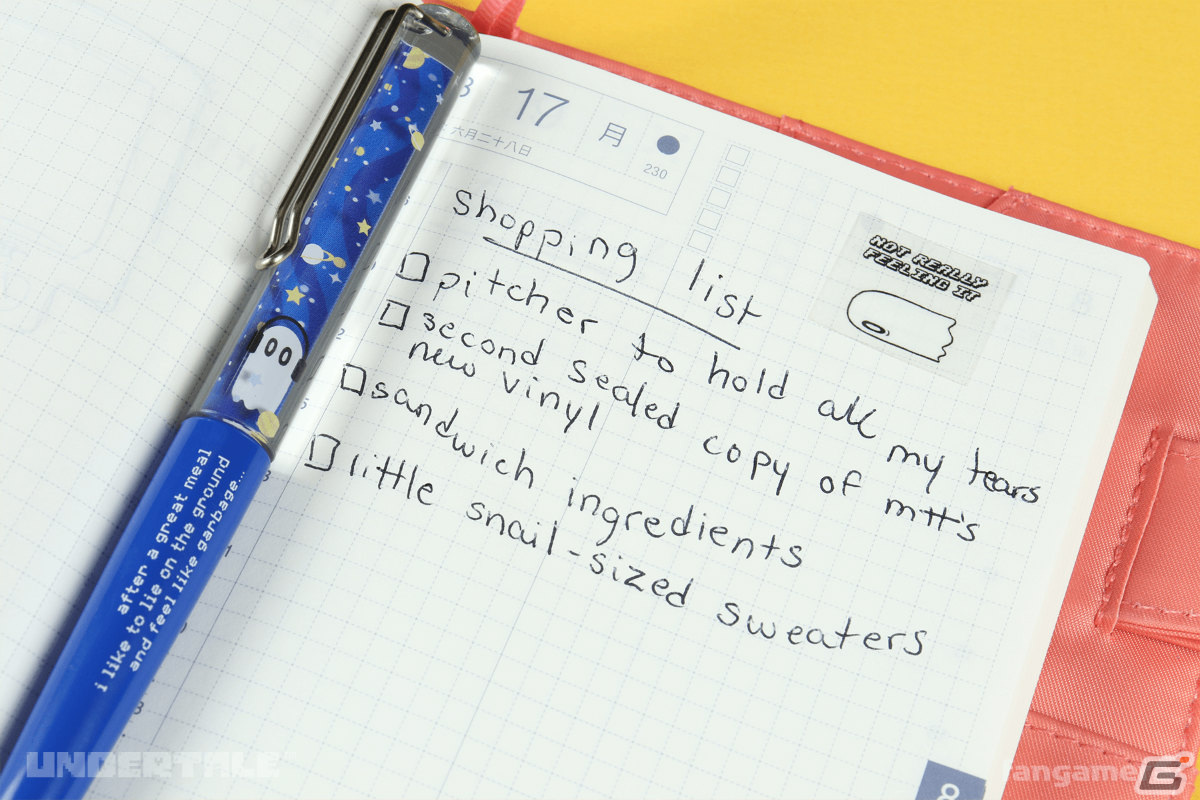 17
月
六月二十八日
230
shopping list
NOT REALLY
FEELING IT
pitcher to hold all my tears
second sealed copy of mtt's
new vinyl
sandwich ingredients
little snail-sized sweaters
after a great meal
i like to lie on the ground
and feel like garbage...
8
UNDERTALE
fangame